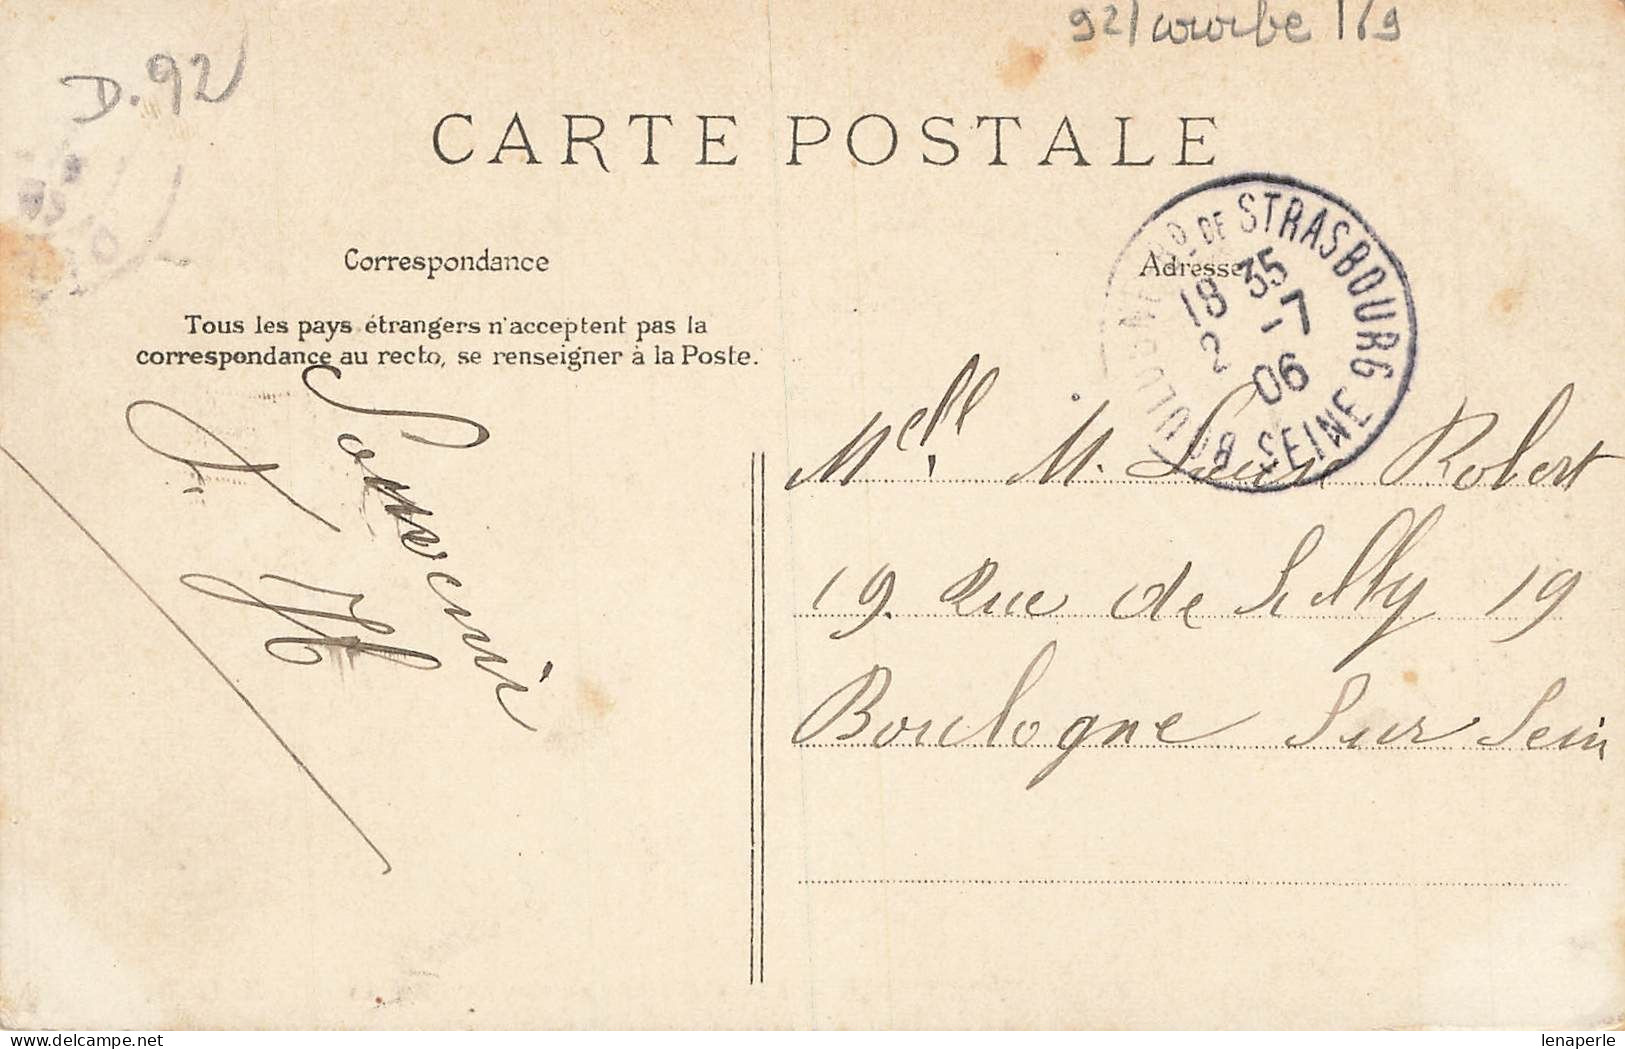 92/courbe 1/9
D.92
CARTE POSTALE
Correspondance
Adresse
Tous les pays étrangers n'acceptent pas la
correspondance au recto, se renseigner à la Poste.
BOULOGNE BD. DE STRASBOURG SEINE
18 35
2 -7
06
Souvenir
Melle M. Louise Robert
19. Rue de Silly 19
Boulogne Sur Sein
lenaperle